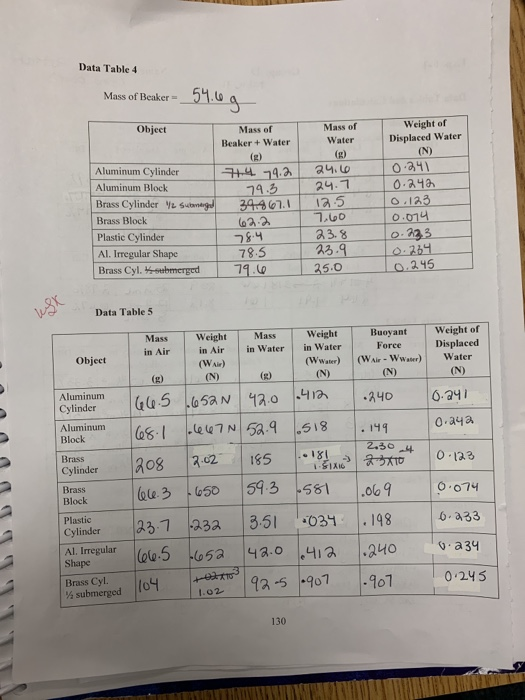 Data Table 4
Mass of Beaker = 54.6 g
Object Mass of Beaker + Water (g) Mass of Water (g) Weight of Displaced Water (N)
Aluminum Cylinder 71.4 79.2 24.6 0.241
Aluminum Block 79.3 24.7 0.242
Brass Cylinder 1/2 submerged 67.1 12.5 0.123
Brass Block 62.2 7.60 0.074
Plastic Cylinder 78.4 23.8 0.233
Al. Irregular Shape 78.5 23.9 0.234
Brass Cyl. ½ submerged 79.6 25.0 0.245
Data Table 5
Object Mass in Air (g) Weight in Air (WAir) (N) Mass in Water (g) Weight in Water (WWater) (N) Buoyant Force (WAir - WWater) (N) Weight of Displaced Water (N)
Aluminum Cylinder 66.5 .652 N 42.0 .412 .240 0.241
Aluminum Block 68.1 .667 N 52.9 .518 .149 0.242
Brass Cylinder 208 2.02 185 .181 1.81x10 2.30 2.3x10-4 0.123
Brass Block 66.3 .650 59.3 .581 .069 0.074
Plastic Cylinder 23.7 .232 3.51 .034 .198 0.233
Al. Irregular Shape 66.5 .652 42.0 .412 .240 0.234
Brass Cyl. ½ submerged 104 1.02x10-3 1.02 92.5 .907 .907 0.245
130